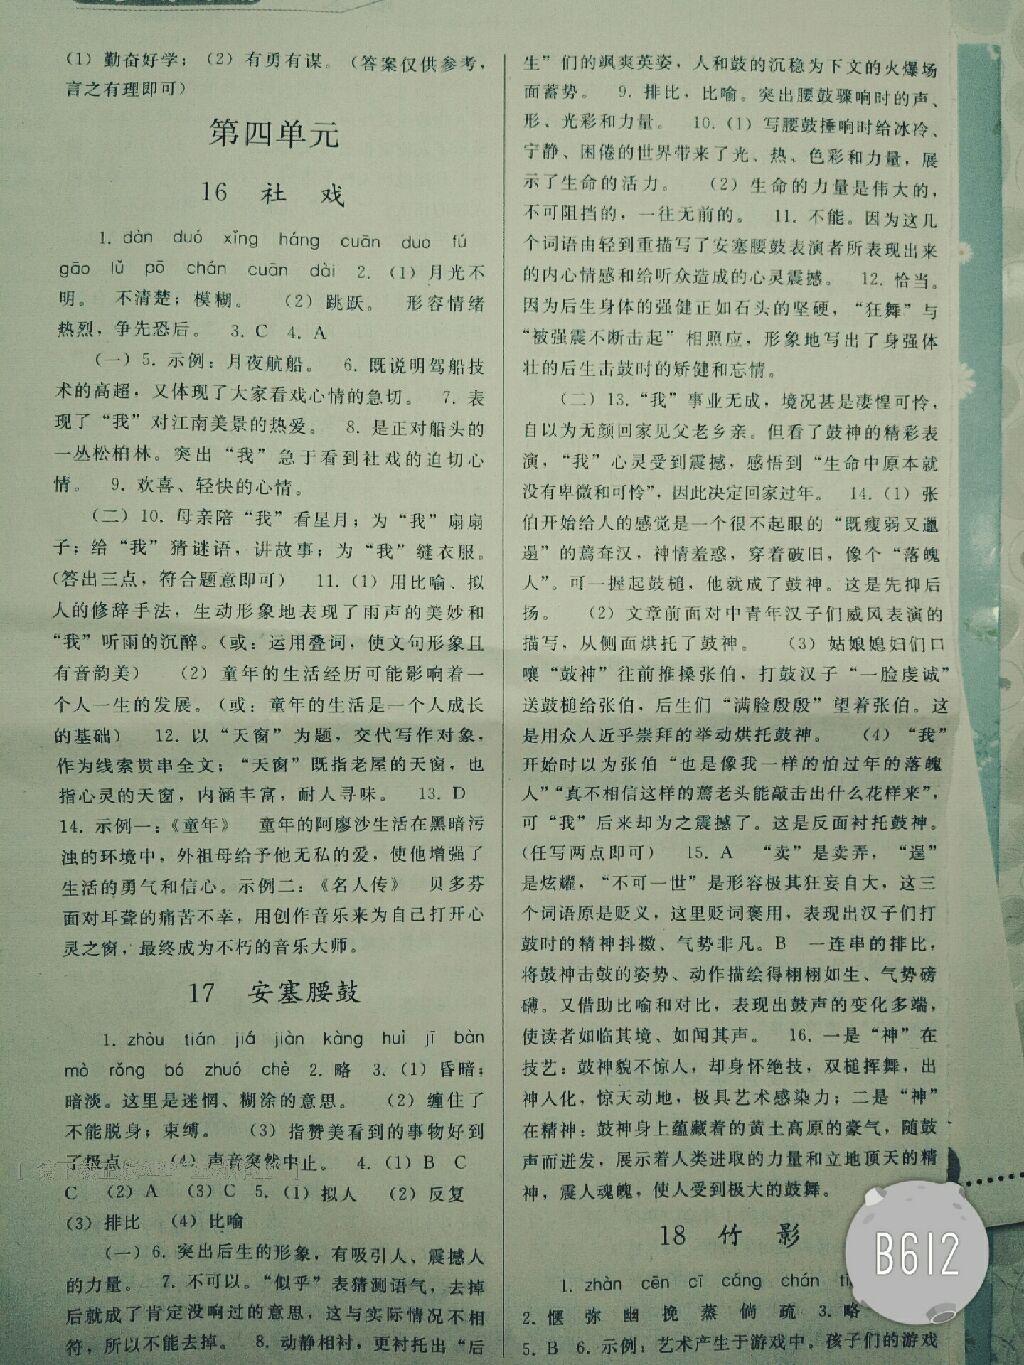 (1) 勤奋好学；(2) 有勇有谋。(答案仅供参考，
言之有理即可)
第四单元
16 社 戏
1. dàn duó xǐng háng cuān duo fú
gāo lǔ pō chán cuān dài 2. (1) 月光不
明。 不清楚；模糊。 (2) 跳跃。 形容情绪
热烈，争先恐后。 3. C 4. A
(一) 5. 示例：月夜航船。 6. 既说明驾船技
术的高超，又体现了大家看戏心情的急切。 7. 表
现了“我”对江南美景的热爱。 8. 是正对船头的
一丛松柏林。突出“我”急于看到社戏的迫切心
情。 9. 欢喜、轻快的心情。
(二) 10. 母亲陪“我”看星月；为“我”扇扇
子；给“我”猜谜语，讲故事；为“我”缝衣服。
(答出三点，符合题意即可) 11. (1) 用比喻、拟
人的修辞手法，生动形象地表现了雨声的美妙和
“我”听雨的沉醉。(或：运用叠词，使文句形象且
有音韵美) (2) 童年的生活经历可能影响着一
个人一生的发展。(或：童年的生活是一个人成长
的基础) 12. 以“天窗”为题，交代写作对象，
作为线索贯串全文；“天窗”既指老屋的天窗，也
指心灵的天窗，内涵丰富，耐人寻味。 13. D
14. 示例一：《童年》 童年的阿廖沙生活在黑暗污
浊的环境中，外祖母给予他无私的爱，使他增强了
生活的勇气和信心。示例二：《名人传》 贝多芬
面对耳聋的痛苦不幸，用创作音乐来为自己打开心
灵之窗，最终成为不朽的音乐大师。
17 安塞腰鼓
1. zhòu tián jiá jiàn kàng huì jī bàn
mò rǒng bó zhuó chè 2. 略 3. (1) 昏暗；
暗淡。这里是迷惘、糊涂的意思。 (2) 缠住了
不能脱身；束缚。 (3) 指赞美看到的事物好到
了极点。 (4) 声音突然中止。 4. (1) B C
C (2) A (3) C 5. (1) 拟人 (2) 反复
(3) 排比 (4) 比喻
(一) 6. 突出后生的形象，有吸引人、震撼人
的力量。 7. 不可以。“似乎”表猜测语气，去掉
后就成了肯定没响过的意思，这与实际情况不相
符，所以不能去掉。 8. 动静相衬，更衬托出“后
生”们的飒爽英姿，人和鼓的沉稳为下文的火爆场
面蓄势。 9. 排比，比喻。突出腰鼓骤响时的声、
形、光彩和力量。 10. (1) 写腰鼓捶响时给冰冷、
宁静、困倦的世界带来了光、热、色彩和力量，展
示了生命的活力。 (2) 生命的力量是伟大的，
不可阻挡的，一往无前的。 11. 不能。因为这几
个词语由轻到重描写了安塞腰鼓表演者所表现出来
的内心情感和给听众造成的心灵震撼。 12. 恰当。
因为后生身体的强健正如石头的坚硬，“狂舞”与
“被强震不断击起”相照应，形象地写出了身强体
壮的后生击鼓时的矫健和忘情。
(二) 13. “我”事业无成，境况甚是凄惶可怜，
自以为无颜回家见父老乡亲。但看了鼓神的精彩表
演，“我”心灵受到震撼，感悟到“生命中原本就
没有卑微和可怜”，因此决定回家过年。 14. (1) 张
伯开始给人的感觉是一个很不起眼的“既瘦弱又邋
遢”的蔫耷汉，神情羞惑，穿着破旧，像个“落魄
人”。可一握起鼓槌，他就成了鼓神。这是先抑后
扬。 (2) 文章前面对中青年汉子们威风表演的
描写，从侧面烘托了鼓神。 (3) 姑娘媳妇们口
嚷“鼓神”往前推搡张伯，打鼓汉子“一脸虔诚”
送鼓槌给张伯，后生们“满脸殷殷”望着张伯。这
是用众人近乎崇拜的举动烘托鼓神。 (4) “我”
开始时以为张伯“也是像我一样的怕过年的落魄
人”“真不相信这样的蔫老头能敲击出什么花样来”，
可“我”后来却为之震撼了。这是反面衬托鼓神。
(任写两点即可) 15. A “卖”是卖弄，“逞”
是炫耀，“不可一世”是形容极其狂妄自大，这三
个词语原是贬义，这里贬词褒用，表现出汉子们打
鼓时的精神抖擞、气势非凡。B 一连串的排比，
将鼓神击鼓的姿势、动作描绘得栩栩如生、气势磅
礴。又借助比喻和对比，表现出鼓声的变化多端，
使读者如临其境、如闻其声。 16. 一是“神”在
技艺：鼓神貌不惊人，却身怀绝技，双槌挥舞，出
神入化，惊天动地，极具艺术感染力；二是“神”
在精神：鼓神身上蕴藏着的黄土高原的豪气，随鼓
声而迸发，展示着人类进取的力量和立地顶天的精
神，震人魂魄，使人受到极大的鼓舞。
18 竹 影
1. zhàn cēn cī cáng chán
2. 惬 弥 幽 挽 蒸 倘 疏 3. 略
5. B 6. 示例：艺术产生于游戏中，孩子们的游戏
B612